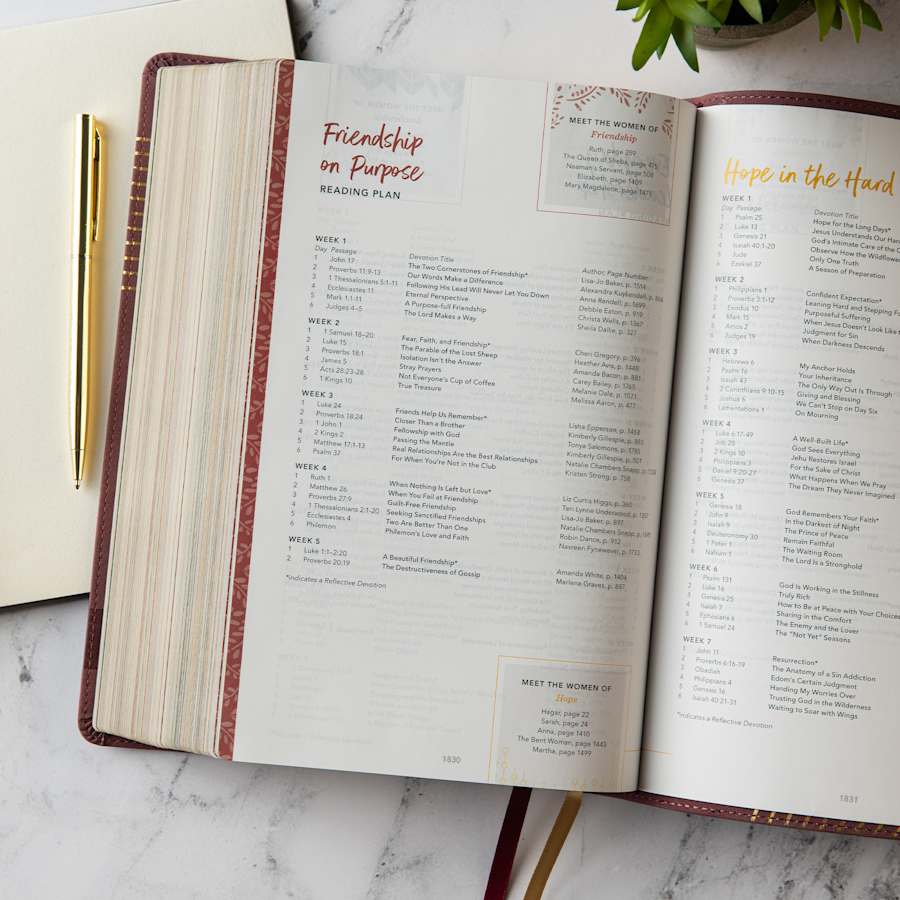 Friendship
on Purpose
READING PLAN
MEET THE WOMEN OF
Friendship
Ruth, page 359
The Queen of Sheba, page 475
Naaman's Servant, page 508
Elizabeth, page 1409
Mary Magdalene, page 1471
WEEK 1
Day Passage Devotion Title Author, Page Number
1 John 17 The Two Cornerstones of Friendship* Lisa-Jo Baker, p. 1514
2 Proverbs 11:9-13 Our Words Make a Difference Alexandra Kuykendall, p.
3 1 Thessalonians 5:1-11 Following His Lead Will Never Let You Down Anna Rendell, p. 1699
4 Ecclesiastes 11 Eternal Perspective Debbie Eaton, p. 919
5 Mark 1:1-11 A Purpose-full Friendship Christa Wells, p. 1367
6 Judges 4–5 The Lord Makes a Way Sheila Dailie, p. 327
WEEK 2
1 1 Samuel 18–20 Fear, Faith, and Friendship* Cheri Gregory, p. 396
2 Luke 15 The Parable of the Lost Sheep Heather Avis, p. 1448
3 Proverbs 18:1 Isolation Isn't the Answer Amanda Bacon, p. 881
4 James 5 Stray Prayers Carey Bailey, p. 1765
5 Acts 28:23-28 Not Everyone's Cup of Coffee Melanie Dale, p.
6 1 Kings 10 True Treasure Melissa Aaron, p. 477
WEEK 3
1 Luke 24 Friends Help Us Remember* Lisha Epperson, p. 1468
2 Proverbs 18:24 Closer Than a Brother Kimberly Gillespie, p. 883
3 1 John 1 Fellowship with God Tonya Salomons, p. 1785
4 2 Kings 2 Passing the Mantle Kimberly Gillespie, p. 501
5 Matthew 17:1-13 Real Relationships Are the Best Relationships Natalie Chambers Snapp, p.
6 Psalm 37 For When You're Not in the Club Kristen Strong, p. 758
WEEK 4
1 Ruth 1 When Nothing Is Left but Love* Liz Curtis Higgs, p. 360
2 Matthew 26 When You Fail at Friendship Teri Lynne Underwood, p.
3 Proverbs 27:9 Guilt-Free Friendship Lisa-Jo Baker, p. 897
4 1 Thessalonians 2:1-20 Seeking Sanctified Friendships Natalie Chambers Snapp, p.
5 Ecclesiastes 4 Two Are Better Than One Robin Dance, p. 912
6 Philemon Philemon's Love and Faith Nasreen Fynewever, p. 1733
WEEK 5
1 Luke 1:1–2:20 A Beautiful Friendship* Amanda White, p. 1404
2 Proverbs 20:19 The Destructiveness of Gossip Marlena Graves, p. 887
*Indicates a Reflective Devotion
MEET THE WOMEN OF
Hope
Hagar, page 22
Sarah, page 24
Anna, page 1410
The Bent Woman, page 1443
Martha, page 1499
1830
Hope in the Hard
WEEK 1
Day Passage Devotion Title
1 Psalm 25 Hope for the Long Days*
2 Luke 13 Jesus Understands Our Har
3 Genesis 21 God's Intimate Care of the
4 Isaiah 40:1-20 Observe How the Wildflower
5 Jude Only One Truth
6 Ezekiel 37 A Season of Preparation
WEEK 2
1 Philippians 1 Confident Expectation*
2 Proverbs 3:1-12 Leaning Hard and Stepping F
3 Exodus 10 Purposeful Suffering
4 Mark 15 When Jesus Doesn't Look Like
5 Amos 2 Judgment for Sin
6 Judges 19 When Darkness Descends
WEEK 3
1 Hebrews 6 My Anchor Holds
2 Psalm 16 Your Inheritance
3 Isaiah 43 The Only Way Out Is Through
4 2 Corinthians 9:10-15 Giving and Blessing
5 Joshua 6 We Can't Stop on Day Six
6 Lamentations 1 On Mourning
WEEK 4
1 Luke 6:17-49 A Well-Built Life*
2 Job 28 God Sees Everything
3 2 Kings 10 Jehu Restores Israel
4 Philippians 3 For the Sake of Christ
5 Daniel 9:20-27 What Happens When We Pray
6 Genesis 37 The Dream They Never Imagined
WEEK 5
1 Genesis 18 God Remembers Your Faith*
2 John 9 In the Darkest of Night
3 Isaiah 9 The Prince of Peace
4 Deuteronomy 30 Remain Faithful
5 1 Peter 1 The Waiting Room
6 Nahum 1 The Lord Is a Stronghold
WEEK 6
1 Psalm 131 God Is Working in the Stillness
2 Luke 16 Truly Rich
3 Genesis 25 How to Be at Peace with Your Choices
4 Isaiah 7 Sharing in the Comfort
5 Ephesians 6 The Enemy and the Lover
6 1 Samuel 24 The "Not Yet" Seasons
WEEK 7
1 John 11 Resurrection*
2 Proverbs 6:16-19 The Anatomy of a Sin Addiction
3 Obadiah Edom's Certain Judgment
4 Philippians 4 Handing My Worries Over
5 Genesis 16 Trusting God in the Wilderness
6 Isaiah 40:21-31 Waiting to Soar with Wings
*Indicates a Reflective Devotion
1831